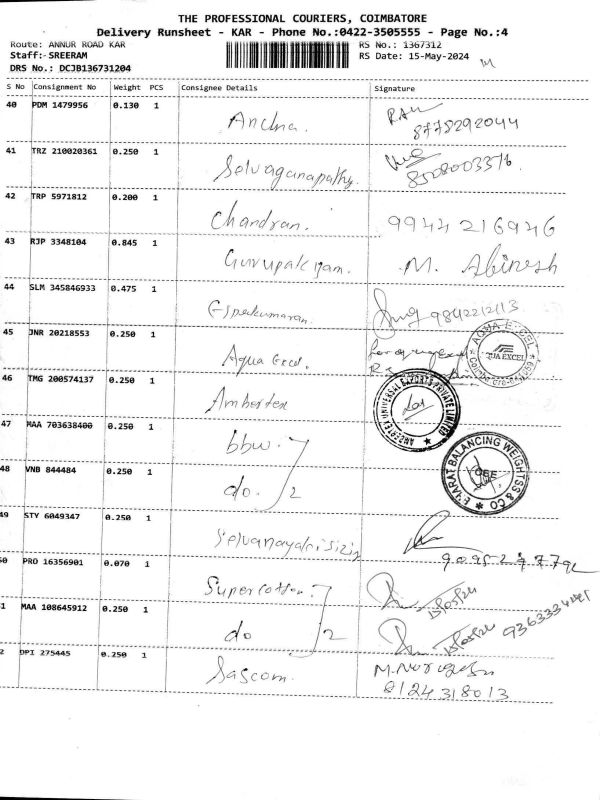 THE PROFESSIONAL COURIERS, COIMBATORE
Delivery Runsheet - KAR - Phone No.:0422-3505555 - Page No.:4
Route: ANNUR ROAD KAR RS No.: 1367312
Staff:-SREERAM RS Date: 15-May-2024
DRS No.: DCJB136731204
S No Consignment No Weight PCS Consignee Details Signature
40 PDM 1479956 0.130 1
8778292044
41 TRZ 210020361 0.250 1 Selvaganapathy.
42 TRP 5971812 0.200 1 Chandran. 9944 216946
43 RJP 3348104 0.845 1 M. Abinesh
44 SLM 345846933 0.475 1
45 JNR 20218553 0.250 1 Aqua Excel. AQUA EXCEL
46 TMG 200574137 0.250 1 Ambertex
47 MAA 703638400 0.250 1 bbw.
BHARAT BALANCING WEIGHTSS & CO
48 VNB 844484 0.250 1 do. 2
49 STY 6049347 0.250 1
50 PRO 16356901 0.070 1 Supercotton. 15/05/24
51 MAA 108645912 0.250 1 do 2 15/05/24
52 DPI 275445 0.250 1 Sascom.
8124318013